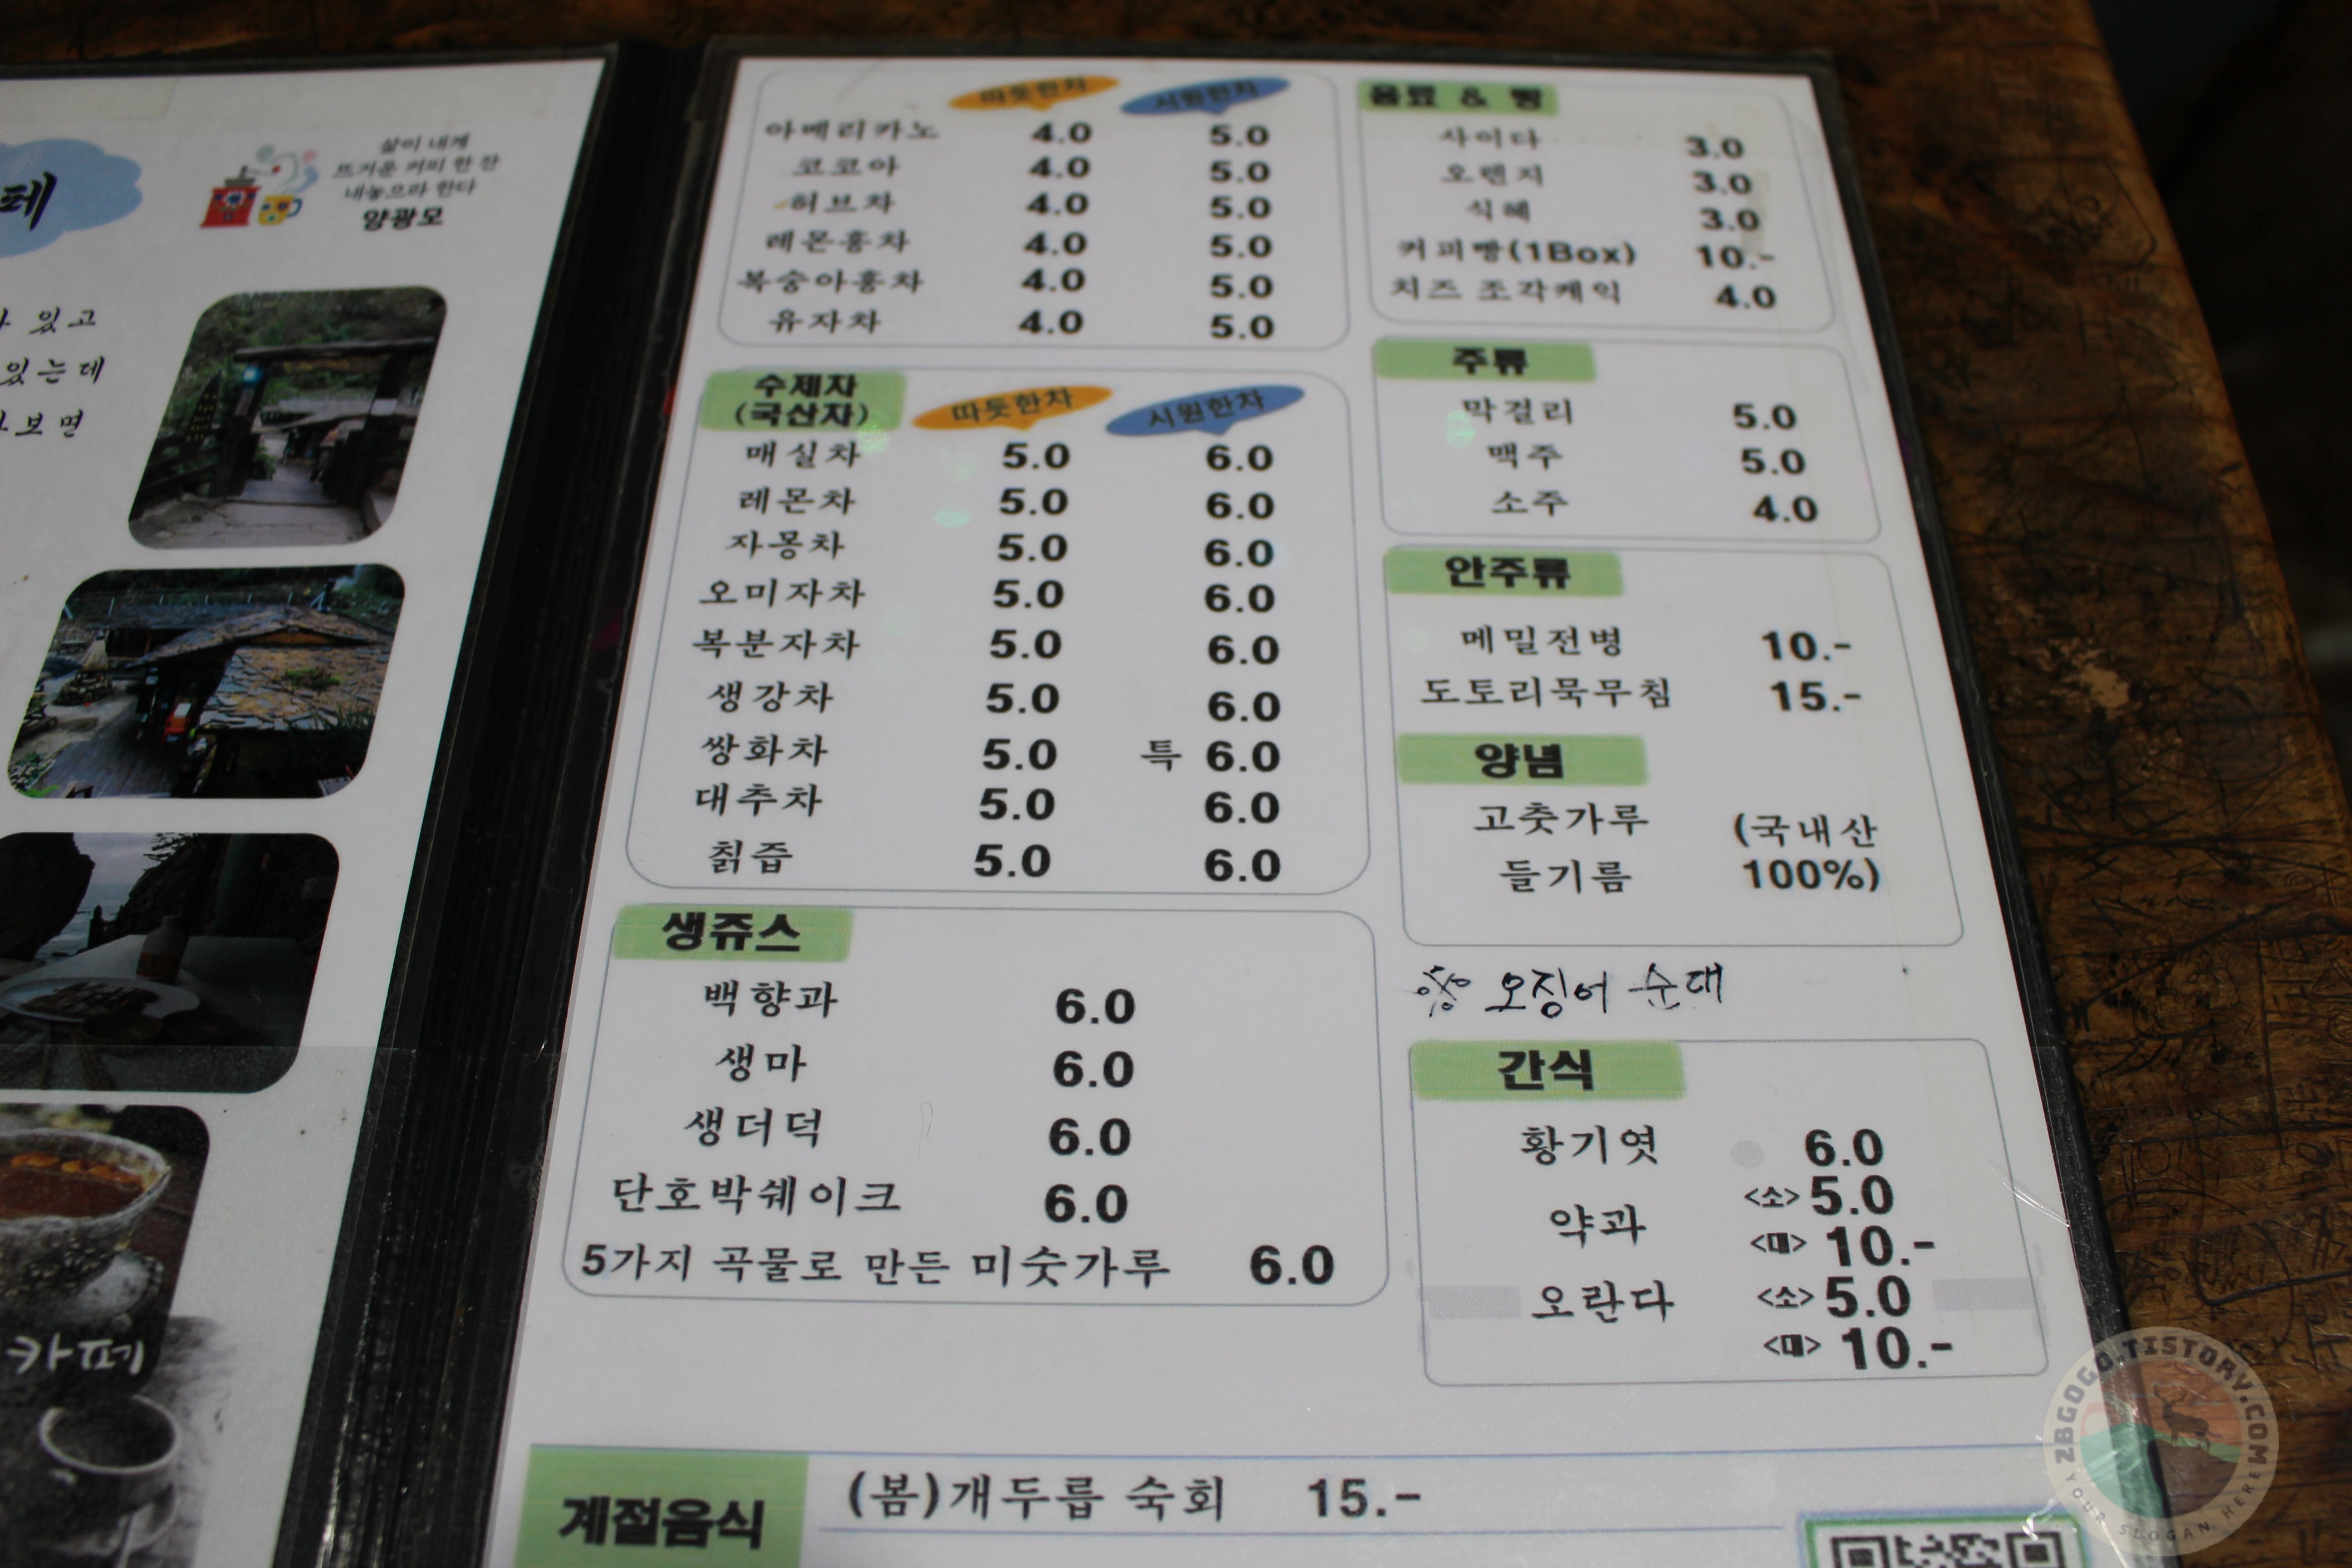 페
삶이 내게
뜨거운 커피 한 잔
내놓으라 한다
양광모
있고
있는데
보면
카페
따뜻한차 시원한차
아메리카노 4.0 5.0
코코아 4.0 5.0
허브차 4.0 5.0
레몬홍차 4.0 5.0
복숭아홍차 4.0 5.0
유자차 4.0 5.0
수제차
(국산차)
따뜻한차 시원한차
매실차 5.0 6.0
레몬차 5.0 6.0
자몽차 5.0 6.0
오미자차 5.0 6.0
복분자차 5.0 6.0
생강차 5.0 6.0
쌍화차 5.0 특 6.0
대추차 5.0 6.0
칡즙 5.0 6.0
생쥬스
백향과 6.0
생마 6.0
생더덕 6.0
단호박쉐이크 6.0
5가지 곡물로 만든 미숫가루 6.0
음료 & 빵
사이다 3.0
오렌지 3.0
식혜 3.0
커피빵(1Box) 10.-
치즈 조각케익 4.0
주류
막걸리 5.0
맥주 5.0
소주 4.0
안주류
메밀전병 10.-
도토리묵무침 15.-
양념
고춧가루 (국내산
들기름 100%)
※ 오징어 순대
간식
황기엿 6.0
약과 <소> 5.0
<대> 10.-
오란다 <소> 5.0
<대> 10.-
계절음식
(봄)개두릅 숙회 15.-
2BGOGO.TISTORY.COM
YOUR SLOGAN HERE